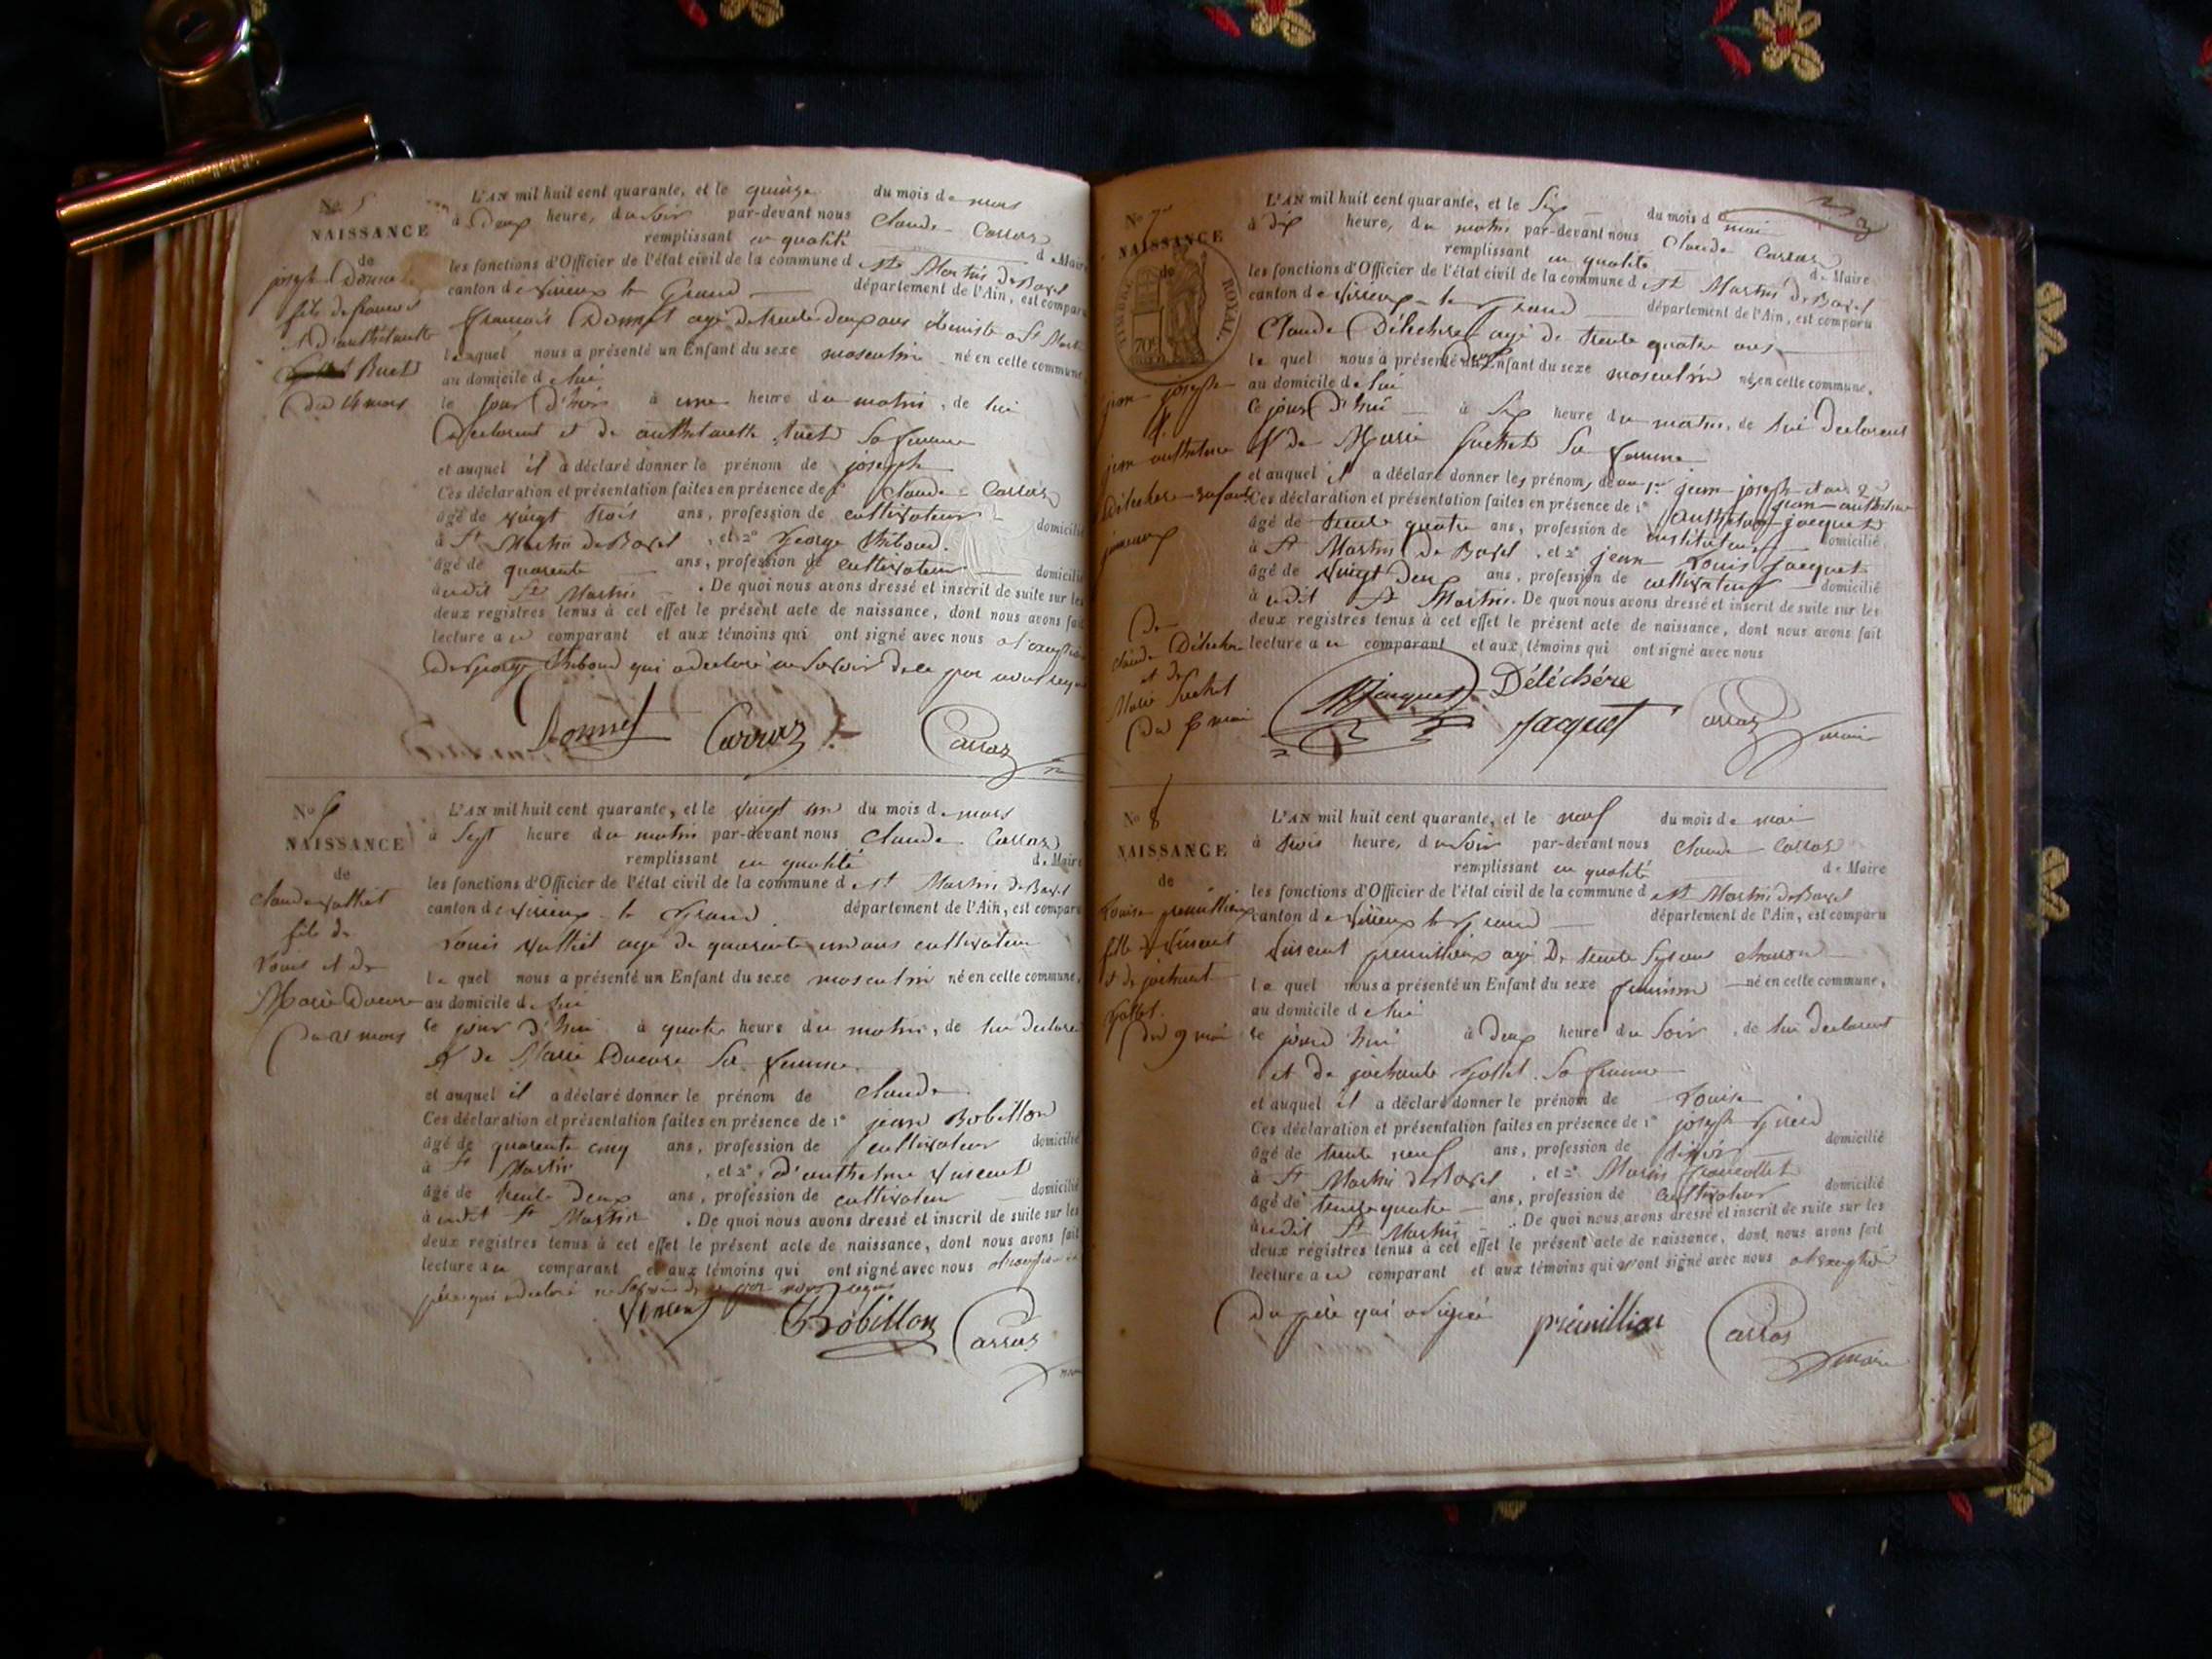 No 5
NAISSANCE
de
joseph Donnet
fils de francois
et d'anthelmette
Buet
Du 14 mars
L'AN mil huit cent quarante, et le quinze du mois de mars
à Deux heure, du Soir par-devant nous Claude Carraz
remplissant en qualité de Maire
les fonctions d'Officier de l'état civil de la commune de St Martin de Bavel
canton de Virieux le Grand département de l'Ain, est comparu
francois Donnet agé de trente deux ans ébeniste a St Martin
lequel nous a présenté un Enfant du sexe masculin né en cette commune
au domicile de lui
le jour d'hier à une heure du matin, de lui
Declarent et de anthelmette Buet Sa femme
et auquel il a déclaré donner le prénom de joseph
Ces déclaration et présentation faites en présence de Claude Carraz
âgé de vingt trois ans, profession de cultivateur domicilié
à St Martin de Bavel, et 2° George Thiboud.
âgé de quarente ans, profession de cultivateur domicilié
à udit St Martin. De quoi nous avons dressé et inscrit de suite sur les
deux registres tenus à cet effet le présent acte de naissance, dont nous avons fait
lecture au comparant et aux témoins qui ont signé avec nous a l'exception
De George Thiboud qui a declaré ne Savoir de ce par nous requis
Donnet Carraz Carraz
No 6
NAISSANCE
de
Claude Valliet
fils de
Louis et de
Marie Ducure
Du 21 mars
L'AN mil huit cent quarante, et le vingt un du mois de mars
à Sept heure du matin par-devant nous Claude Carraz
remplissant en qualité de Maire
les fonctions d'Officier de l'état civil de la commune de St Martin de Bavel
canton de Virieux le Grand département de l'Ain, est comparu
Louis Valliet agé de quarante un ans cultivateur
lequel nous a présenté un Enfant du sexe masculin né en cette commune,
au domicile de lui
ce jour d'hui à quatre heure du matin, de lui declarent
et de Marie Ducure Sa femme
et auquel il a déclaré donner le prénom de Claude
Ces déclaration et présentation faites en présence de 1° jean Bobillon
âgé de quarente cinq ans, profession de cultivateur domicilié
à St Martin, et 2° d'anthelme Vincent
âgé de trente deux ans, profession de cultivateur domicilié
à udit St Martin. De quoi nous avons dressé et inscrit de suite sur les
deux registres tenus à cet effet le présent acte de naissance, dont nous avons fait
lecture au comparant et aux témoins qui ont signé avec nous
père qui a declaré ne Savoir de ce par nous requis
Vincent Bobillon Carraz
maire
No 7
NAISSANCE
de
TIMBRE ROYAL
70c
jean joseph
et
jean anthelme
Délechere enfans
jumeaux
De
Claude Délechere
et de
Marie Suchet
Du 6 mai
L'AN mil huit cent quarante, et le Six du mois de mai
à dix heure, du matin par-devant nous Claude Carraz
remplissant en qualité de Maire
les fonctions d'Officier de l'état civil de la commune de St Martin de Bavel
canton de Virieux le Grand département de l'Ain, est comparu
Claude Délechere agé de trente quatre ans
lequel nous a présenté deux Enfant du sexe masculin né, en cette commune,
au domicile de lui
ce jour d'hui à Six heure du matin, de lui declarent
et de Marie Suchet Sa femme
et auquel il a déclaré donner les prénom, de au 1er jean joseph et au 2d
jean anthelme
Ces déclaration et présentation faites en présence de 1° Anthelme jacquet
âgé de trente quatre ans, profession de instituteur domicilié
à St Martin de Bavel, et 2° jean Louis jacquet
âgé de vingt deux ans, profession de cultivateur domicilié
à udit St Martin. De quoi nous avons dressé et inscrit de suite sur les
deux registres tenus à cet effet le présent acte de naissance, dont nous avons fait
lecture au comparant et aux témoins qui ont signé avec nous
Jacquet Déléchére
Jacquet Carraz maire
No 8
NAISSANCE
de
Louise premillieu
fille de Vincent
et de
gollet.
Du 9 mai
L'AN mil huit cent quarante, et le neuf du mois de mai
à trois heure, du Soir par-devant nous Claude Carraz
remplissant en qualité de Maire
les fonctions d'Officier de l'état civil de la commune de St Martin de Bavel
canton de Virieux le Grand département de l'Ain, est comparu
Vincent premillieux agé De trente Sept ans charron
lequel nous a présenté un Enfant du sexe feminin né en cette commune,
au domicile de lui
ce jourd'hui à Deux heure du Soir, de lui declarent
et de gollet Sa femme
et auquel il a déclaré donner le prénom de Louise
Ces déclaration et présentation faites en présence de 1° joseph
âgé de trente neuf ans, profession de domicilié
à St Martin de Bavel, et 2° Marin
âgé de trente quatre ans, profession de cultivateur domicilié
à udit St Martin. De quoi nous avons dressé et inscrit de suite sur les
deux registres tenus à cet effet le présent acte de naissance, dont nous avons fait
lecture au comparant et aux témoins qui ont signé avec nous
Du père qui a Signé prémillieu Carraz
maire